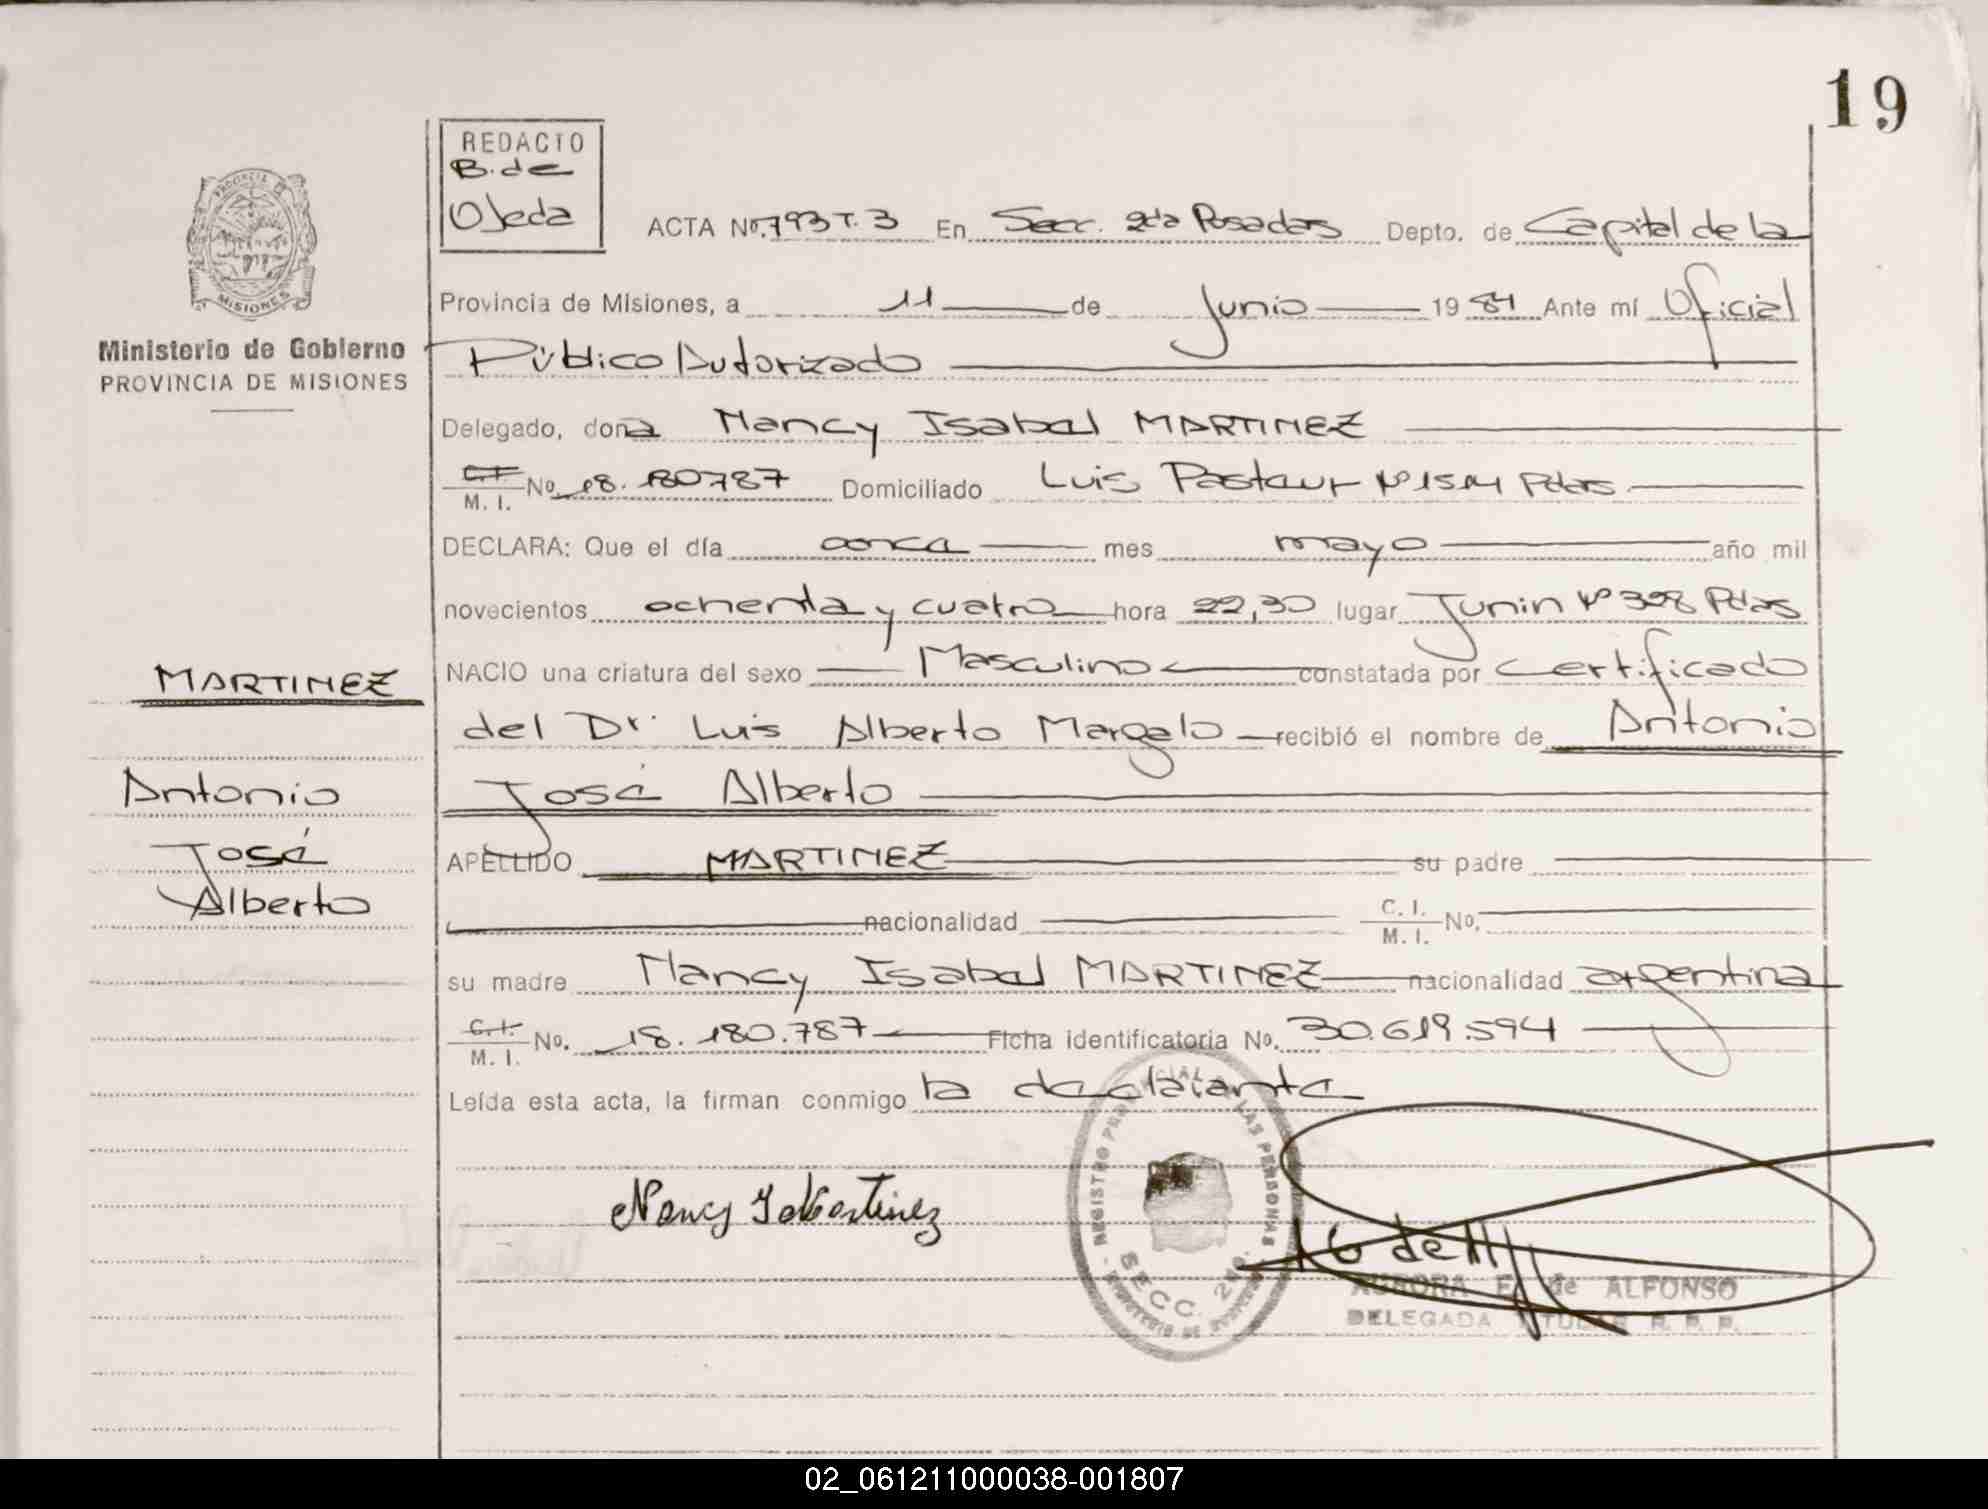 19
REDACTO
B. de
Ojeda
PROVINCIA DE
MISIONES
Ministerio de Gobierno
PROVINCIA DE MISIONES
ACTA Nº 793 T. 3 En Secc. 2da Posadas Depto. de Capital de la
Provincia de Misiones, a 11 de Junio 1984 Ante mí Oficial
Público Autorizado
Delegado, doña Nancy Isabel MARTINEZ
C.I. M. I. No. 18.180787 Domiciliado Luis Pasteur Nº 1514 Pdas
DECLARA: Que el día once mes mayo año mil
novecientos ochenta y cuatro hora 22,30 lugar Junin Nº 398 Pdas
NACIO una criatura del sexo Masculino constatada por certificado
del Dr. Luis Alberto Margalo recibió el nombre de Antonio
José Alberto
APELLIDO MARTINEZ su padre
nacionalidad C. I. M. I. No.
su madre Nancy Isabel MARTINEZ nacionalidad argentina
C.I. M. I. No. 18.180.787 Ficha identificatoria No. 30.619.594
Leída esta acta, la firman conmigo la declarante
MARTINEZ
Antonio
José
Alberto
Nancy I Martinez
REGISTRO LAS PERSONAS
SECC. 2da.
AURORA E. de ALFONSO
DELEGADA TITULAR R. P. P.
02_061211000038-001807